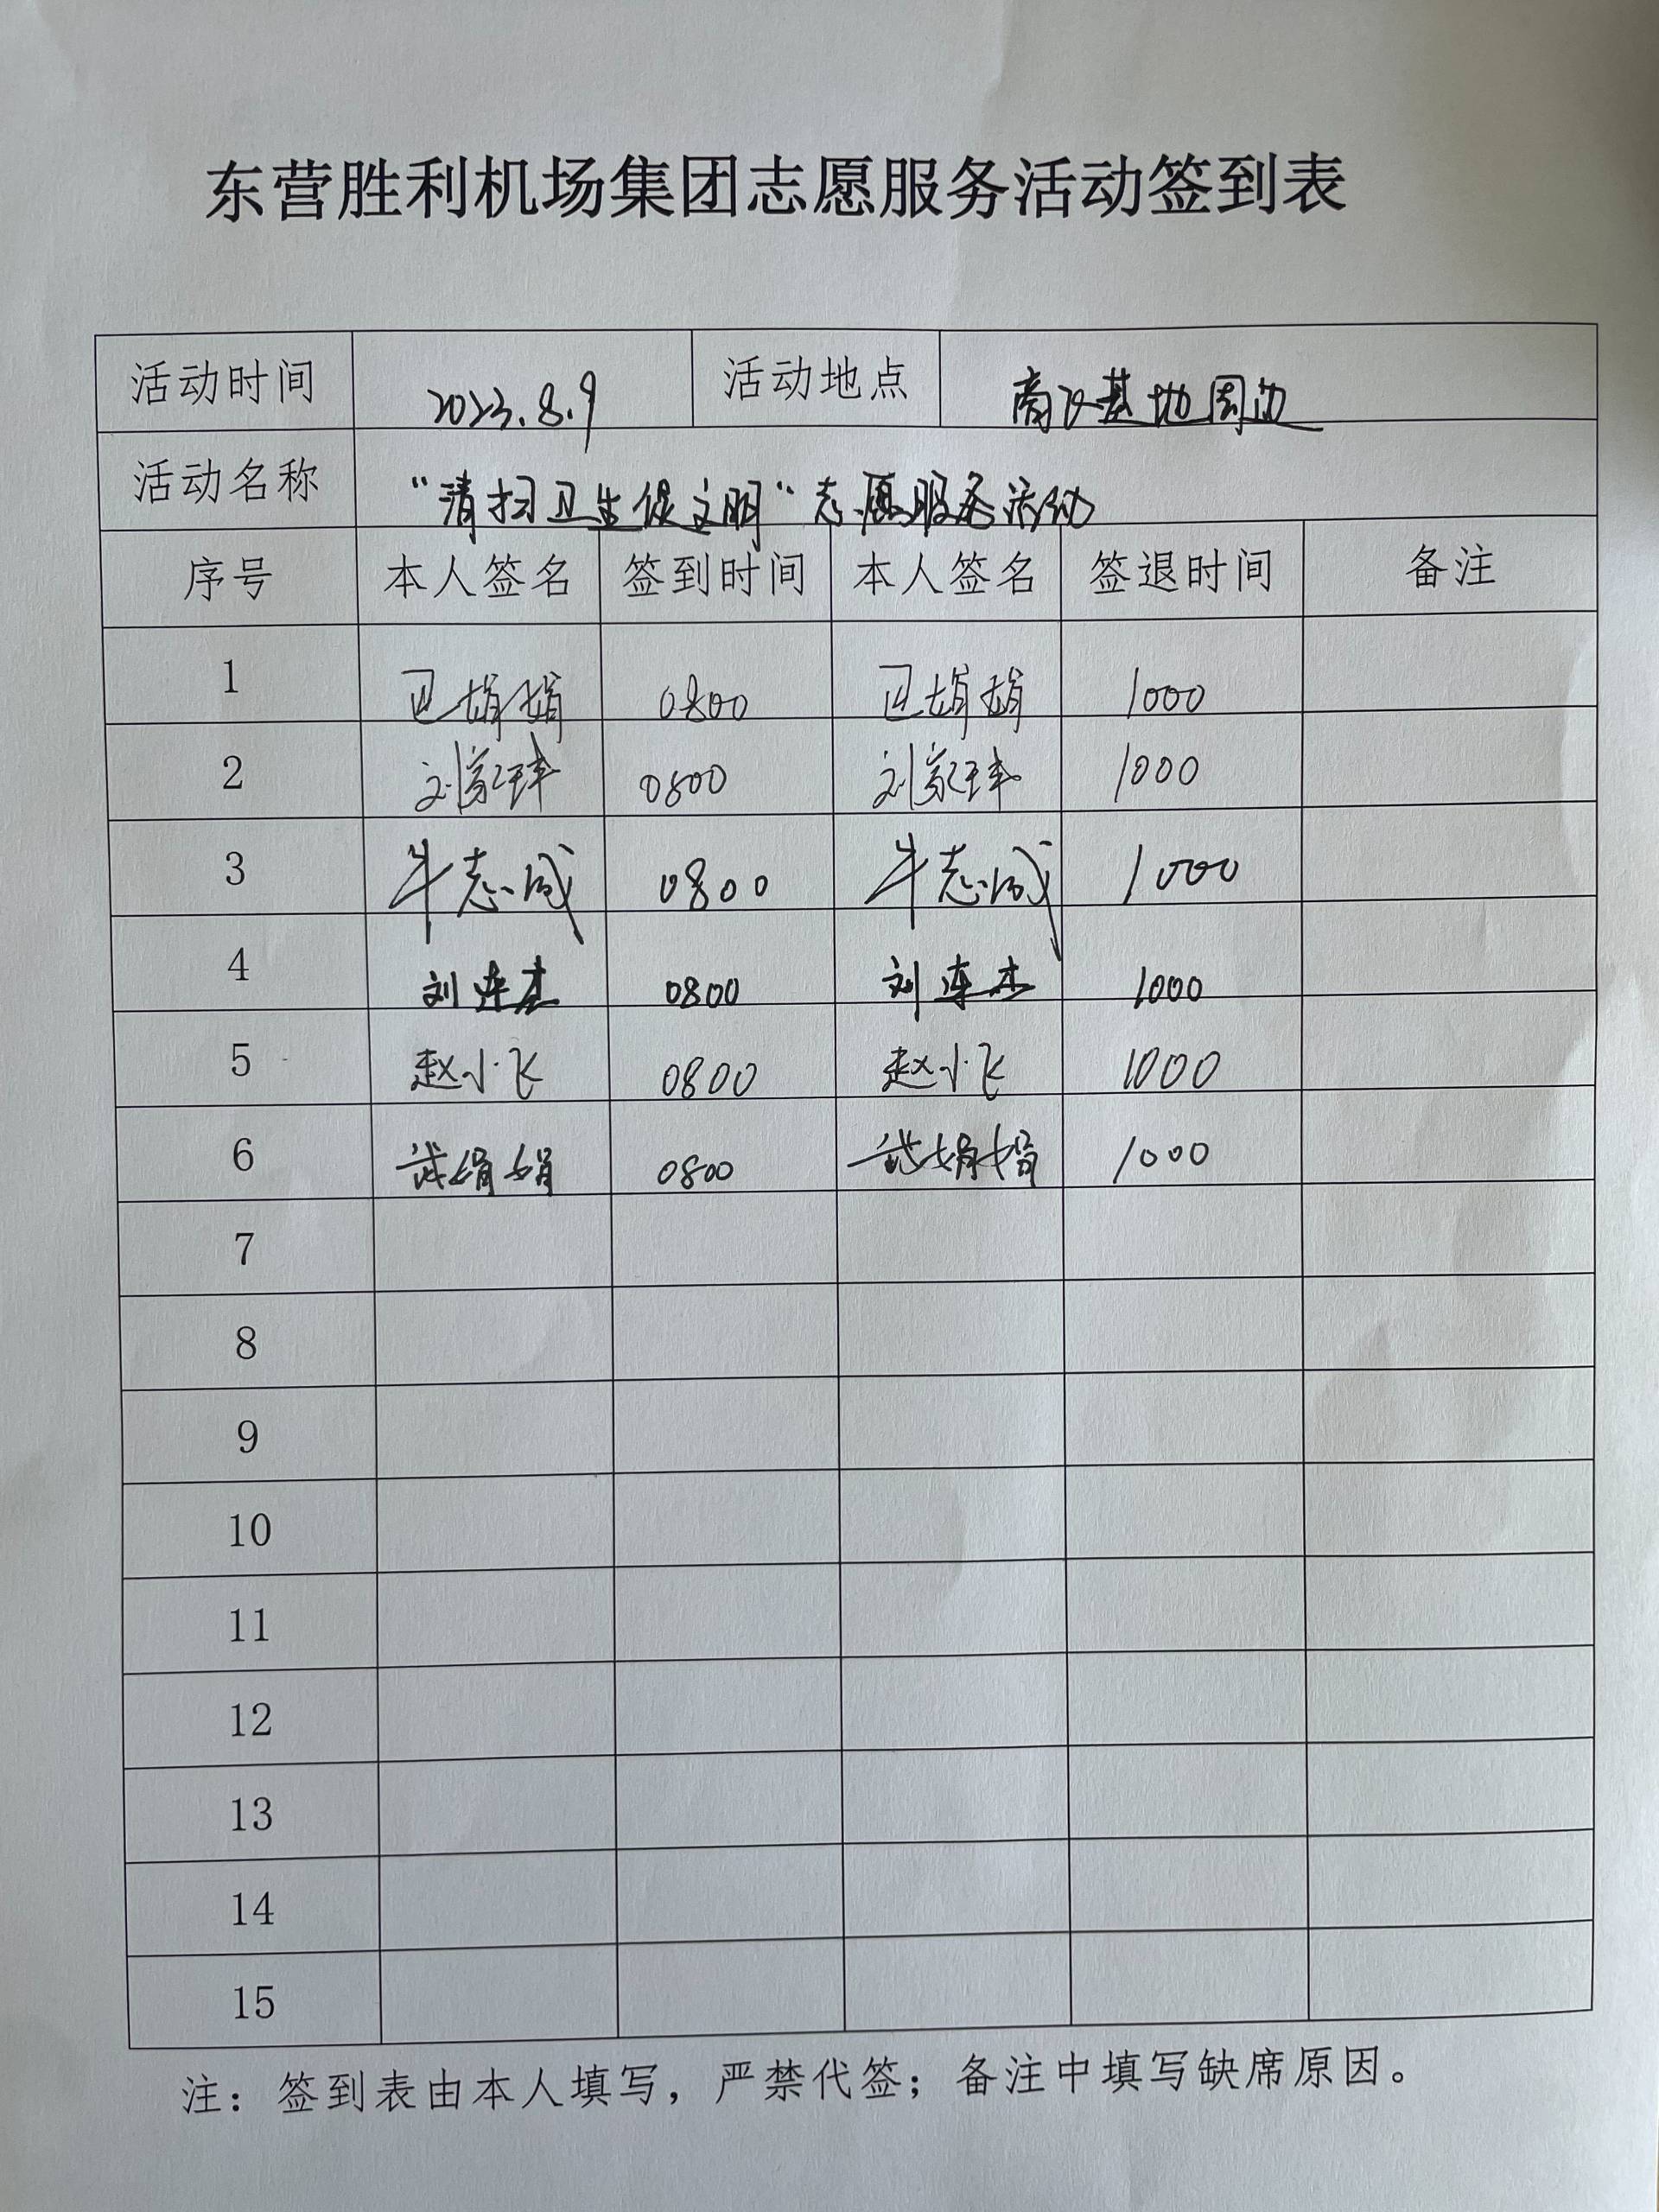 东营胜利机场集团志愿服务活动签到表
活动时间 2023.8.9 活动地点 商飞基地周边
活动名称 “清扫卫生促文明“志愿服务活动
序号 本人签名 签到时间 本人签名 签退时间 备注
1 卫娟娟 0800 卫娟娟 1000
2 刘家玮 0800 刘家玮 1000
3 牛志成 0800 牛志成 1000
4 刘连杰 0800 刘连杰 1000
5 赵小飞 0800 赵小飞 1000
6 武娟娟 0800 武娟娟 1000
7
8
9
10
11
12
13
14
15
注：签到表由本人填写，严禁代签；备注中填写缺席原因。